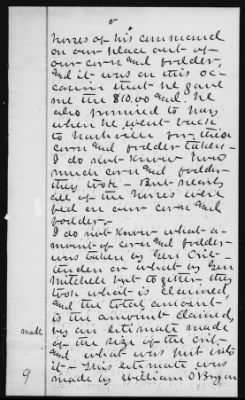 5
horses of his command
on our place out of
our corn and fodder,
and it was on this oc-
casion that he gave
me the $10.00 and he
also promised to pay
when he went back
to Nashville for this
corn and fodder taken -
I do not know how
much corn and fodder
they took - But nearly
all of the horses were
fed on our corn and
fodder.
I do not know what a-
mount of corn and fodder
was taken by Gen Crit-
tenden or what by Gen
Mitchell but together they
took what is claimed,
and the total amount
is the amount claimed,
by an estimate made
of the size of the crib
and what was put into
it - This estimate was
made by William O'Bryan
9